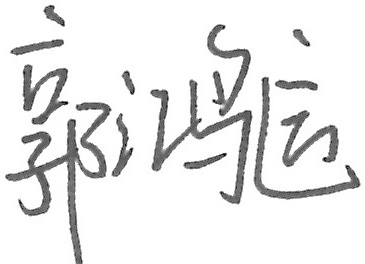 郭鸿运